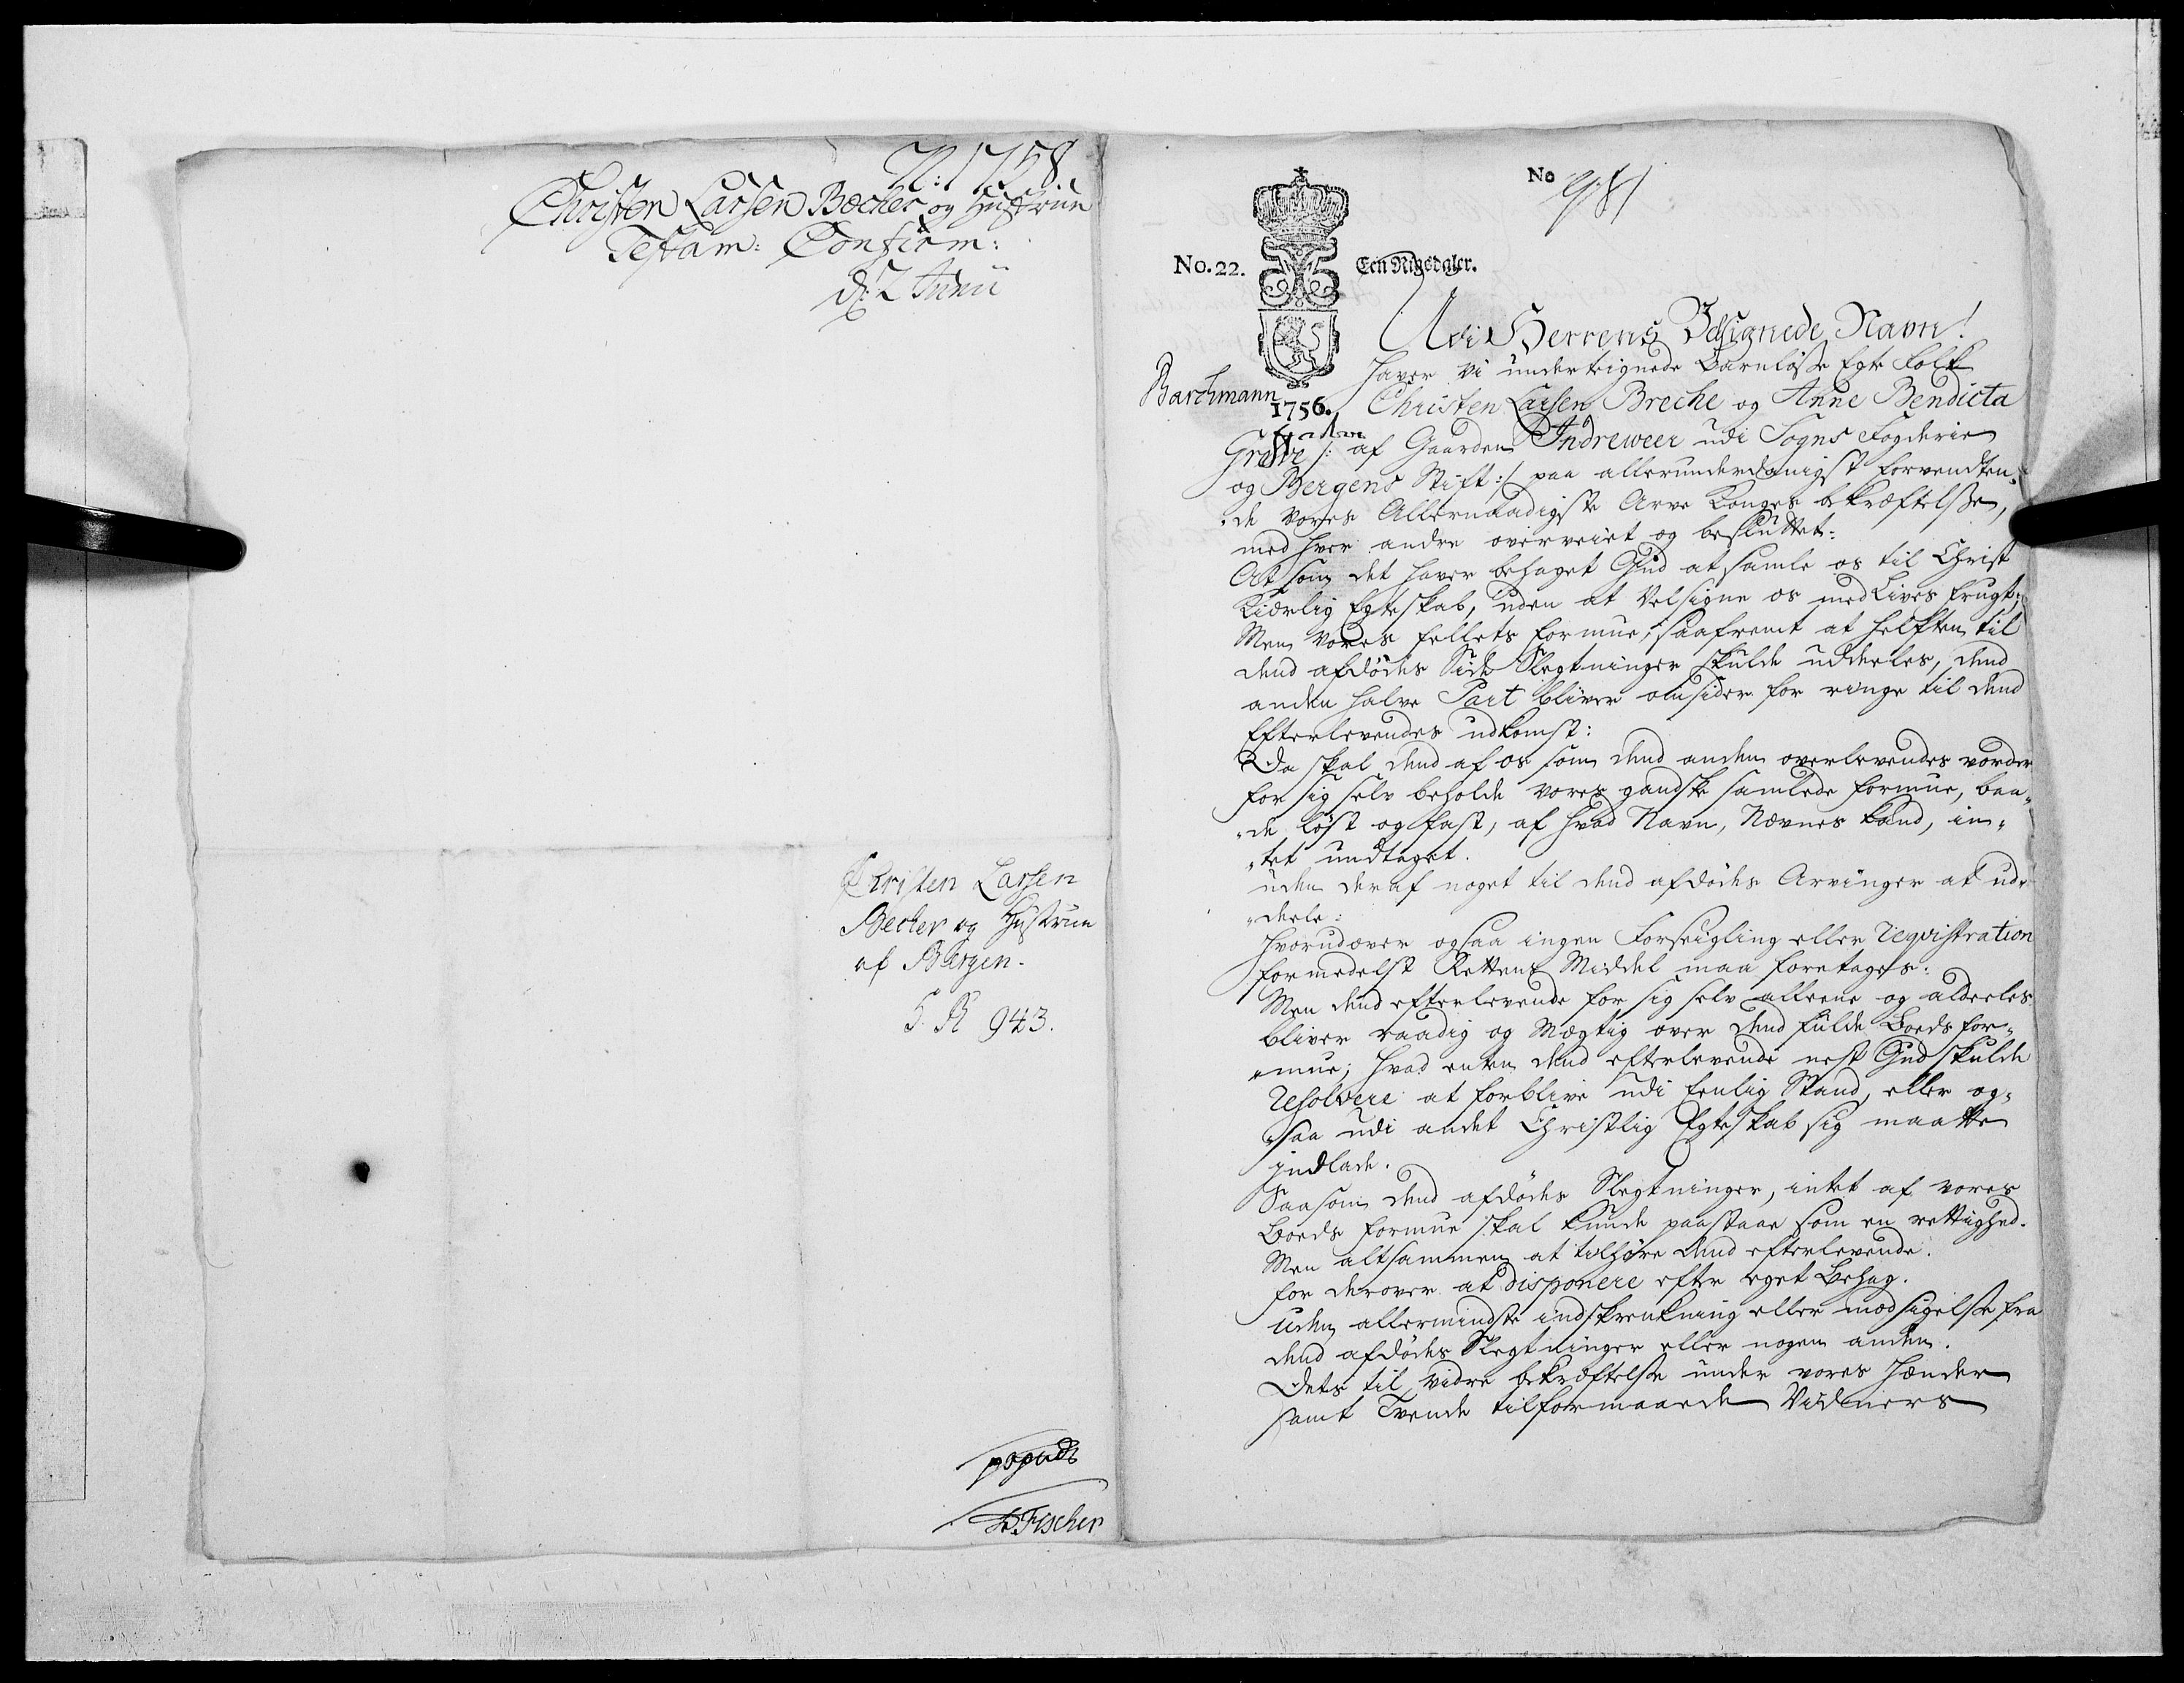 N: 1758.
Christen Larsen Becher og Hustrue
Testam: Confirm:
d: 2 Junii
Christen Larsen
Becher og Hustrue
af Bergen.
S. R 943.
Fischer
No 981
No. 22.
Een Rigsdaler.
Udi Herrens Velsignede Navn!
Haver vi underteignede Barnløse Egte Folk
Barchmann
1756.
Christen Larsen Breche og Anne Bendicta
Greve /: af Gaarden Indreweer udi Sogns Fogderie
og Bergens Stift :/ paa allerunderdanigst forvendten-
-de Vores Allernaadigste Arve Konges bekræftelse,
med hver andre overveiet og besluttet:
At som det haver behaget Gud at samle os til Christ
Kierlig Egteskab, uden at Velsigne os med Livs frugt;
Men Vores fellets formue, saafremt at helften til
dend afdødes Side Slegtninger skulde uddeeles, dend
anden halve Part bliver omsider for ringe til dend
Efterlevendes udkomst:
Da skal dend af os som dend anden overlevendes vorder
for sig selv beholde vores gandske samlede formue, baa„
„de løst og fast, af hvad Navn, Nævnes kand, in„
„tet undtaget.
uden deraf noget til dend afdødes Arvinger at ud„
„deele:
Hvorudover ogsaa ingen Forseigling eller Reqvistration
formedelst Rettens Middel maa foretages:
Men dend efterlevende for sig selv alleene og aldeeles
bliver raadig og Mægtig over dend fulde Boeds for„
„mue; hvad enten dend efterlevende nest Gud skulde
Resolvere at forblive udi Eenlig Stand, eller og„
„saa udi andet Christlig Egteskab sig maatte
indlade.
Saasom dend afdødes Slegtninger, intet af vores
Boeds formue skal kunde paastaae som en rettighed.
Men altsammen at tilhøre dend efterlevende.
for derover at disponere efter eget Behag.
uden allermindste indskrenkning eller modsigelse fra
dend afdødes Slegtninger eller nogen anden.
Dets til vidre bekræftelse under vores Hænder
samt Tvende tilformaaede Vidners